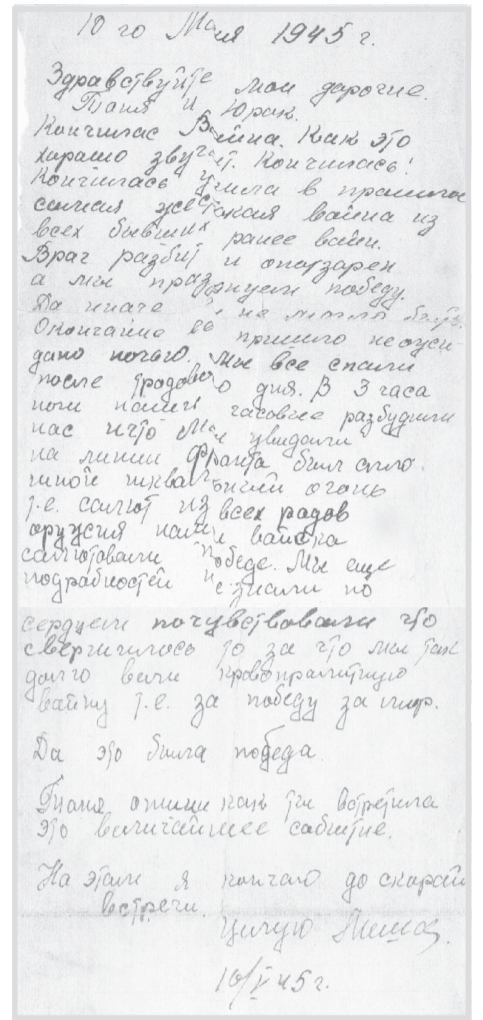 10 го Мая 1945 г.
Здравствуйте мои дарогие.
Таня и Юрак.
Кончилас Война. Как это
харашо звучит. Кончилась!
Кончилась ушла в прашлое
самая жестокая вайна из
всех бывших ранее вайн.
Враг разбит и опазарен
а мы празднуем победу.
Да иначе и не могло быть.
Окончание её пришло неожи-
дано ночью. Мы все спали
после трудового дня. В 3 часа
ночи наши часовые разбудили
нас и что мы увидали
на линии фронта был спло-
шной шквальный огонь
т.е. салют из всех радов
оружия наши вайска
салютовали победе. Мы еще
подрабностей не знали но
сердцем почувствовали что
свершилось то за что мы так
долго вели кровопралитную
вайну т.е. за победу за мир.
Да это была победа
Таня опиши как ты встретила
это величайшее сабытие.
На этом я кончаю до скарой
встречи.
Цилую Миша.
10/V 45 г.